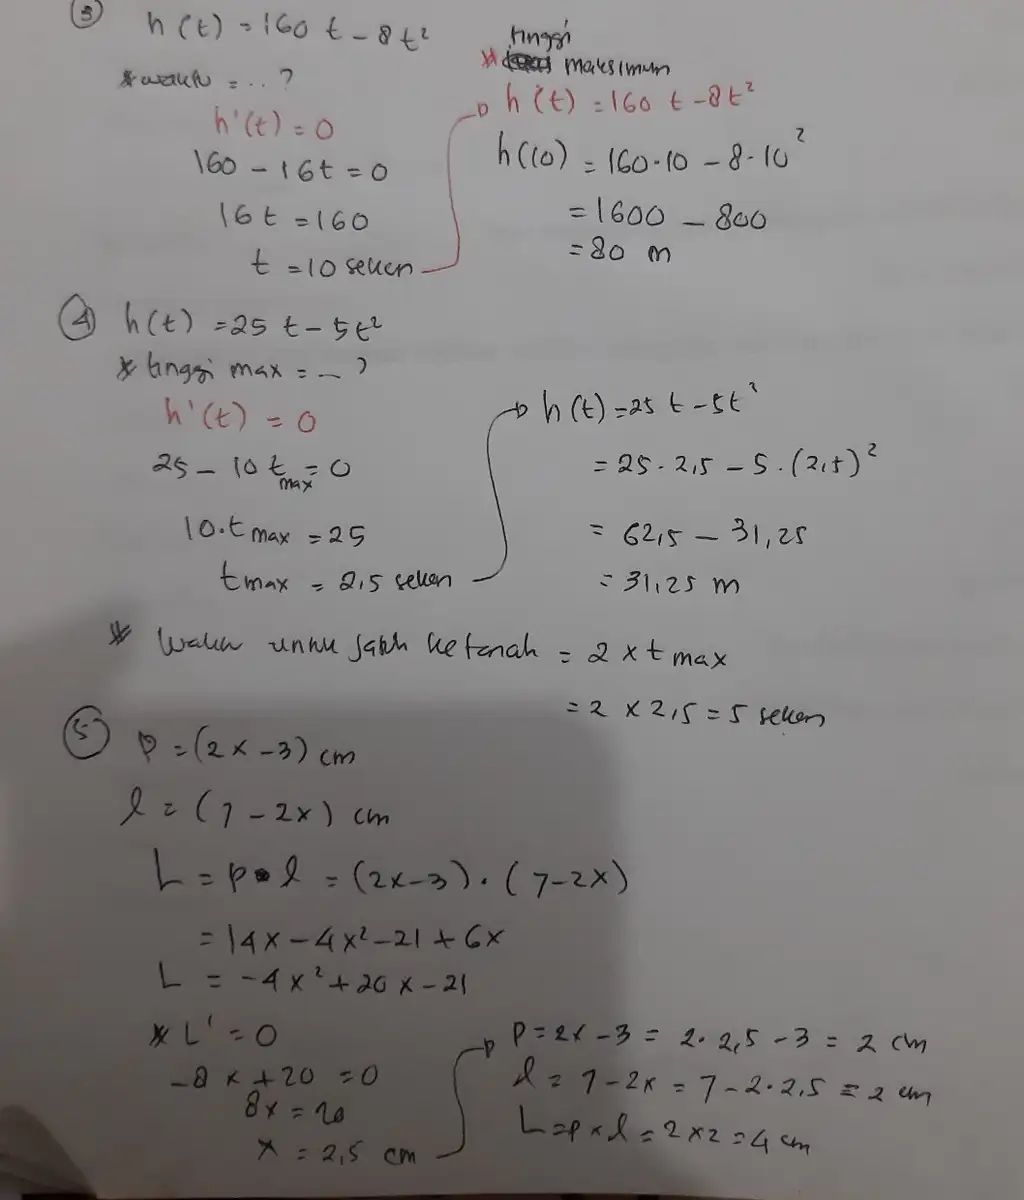 ③ h(t) = 160 t - 8t²
* waktu = ...?
h'(t) = 0
160 - 16t = 0
16t = 160
t = 10 sekon
tinggi
* maksimum
h(t) = 160 t - 8t²
h(10) = 160·10 - 8·10²
= 1600 - 800
= 80 m
④ h(t) = 25 t - 5t²
* tinggi max = ...?
h'(t) = 0
25 - 10 t max = 0
10·t max = 25
t max = 2,5 sekon
h(t) = 25 t - 5t²
= 25·2,5 - 5·(2,5)²
= 62,5 - 31,25
= 31,25 m
* Waktu untuk jatuh ke tanah = 2 x t max
= 2 x 2,5 = 5 sekon
⑤ P = (2x - 3) cm
l = (7 - 2x) cm
L = p·l = (2x-3)·(7-2x)
= 14x - 4x² - 21 + 6x
L = -4x² + 20x - 21
* L' = 0
-8x + 20 = 0
8x = 20
x = 2,5 cm
P = 2x - 3 = 2·2,5 - 3 = 2 cm
l = 7 - 2x = 7 - 2·2,5 = 2 cm
L = p x l = 2 x 2 = 4 cm